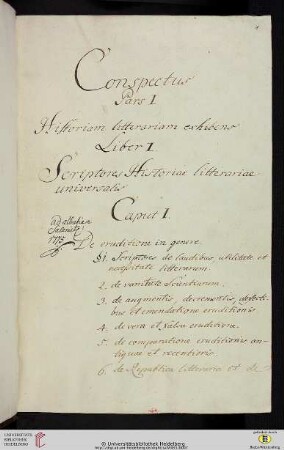 Conspectus
Pars I.
Historiam litterariam exhibens
Liber I.
Scriptores Historiae litterariae
universalis
Caput I.
De eruditione in genere
§1. Scriptores de laudibus, utilitate et
necessitate litterarum
2. de vanitate Scientiarum.
3. de augmentis, decrementis, defecti-
bus et emendatione eruditionis
4. de vera et falsa eruditione.
5. de comparatione eruditionis an-
tiquae et recentioris
6. de Republica litteraria et de
UNIVERSITÄTS-
BIBLIOTHEK
HEIDELBERG
© Universitätsbibliothek Heidelberg